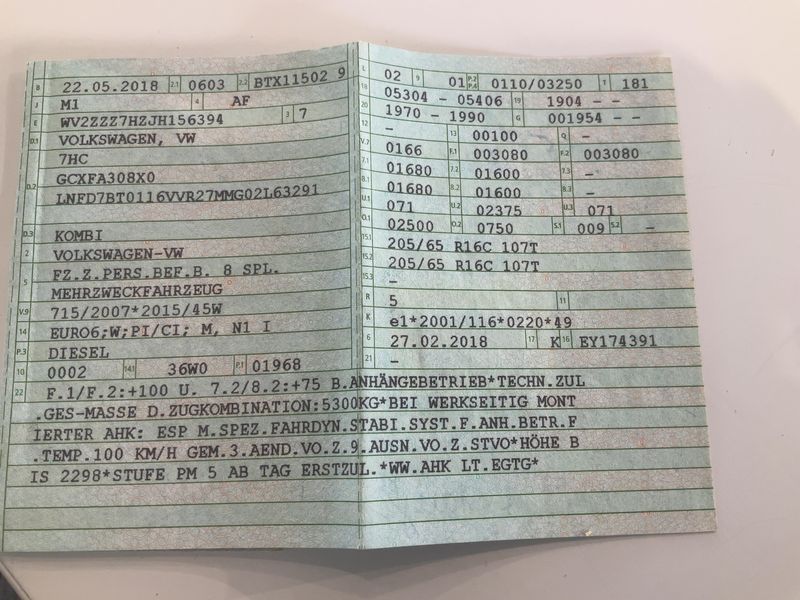 B 22.05.2018 2.1 0603 2.2 BTX11502 9
J M1 4 AF
E WV2ZZZ7HZJH156394 3 7
D.1 VOLKSWAGEN, VW
7HC
D.2 GCXFA308X0
LNFD7BT0116VVR27MMG02L63291
D.3 KOMBI
2 VOLKSWAGEN-VW
5 FZ.Z.PERS.BEF.B. 8 SPL.
MEHRZWECKFAHRZEUG
V.9 715/2007*2015/45W
14 EURO6;W;PI/CI; M, N1 I
P.3 DIESEL
10 0002 14.1 36W0 P.1 01968
L 02 9 01 P.2 P.4 0110/03250 T 181
18 05304 - 05406 19 1904 - -
20 1970 - 1990 G 001954 - -
12 - 13 00100 Q -
V.7 0166 F.1 003080 F.2 003080
7.1 01680 7.2 01600 7.3 -
8.1 01680 8.2 01600 8.3 -
U.1 071 U.2 02375 U.3 071
O.1 02500 O.2 0750 S.1 009 S.2 -
15.1 205/65 R16C 107T
15.2 205/65 R16C 107T
15.3 -
R 5 11
K e1*2001/116*0220*49
6 27.02.2018 17 K 16 EY174391
21 -
22 F.1/F.2:+100 U. 7.2/8.2:+75 B.ANHÄNGEBETRIEB*TECHN.ZUL
.GES-MASSE D.ZUGKOMBINATION:5300KG*BEI WERKSEITIG MONT
IERTER AHK: ESP M.SPEZ.FAHRDYN.STABI.SYST.F.ANH.BETR.F
.TEMP.100 KM/H GEM.3.AEND.VO.Z.9.AUSN.VO.Z.STVO*HÖHE B
IS 2298*STUFE PM 5 AB TAG ERSTZUL.*WW.AHK LT.EGTG*